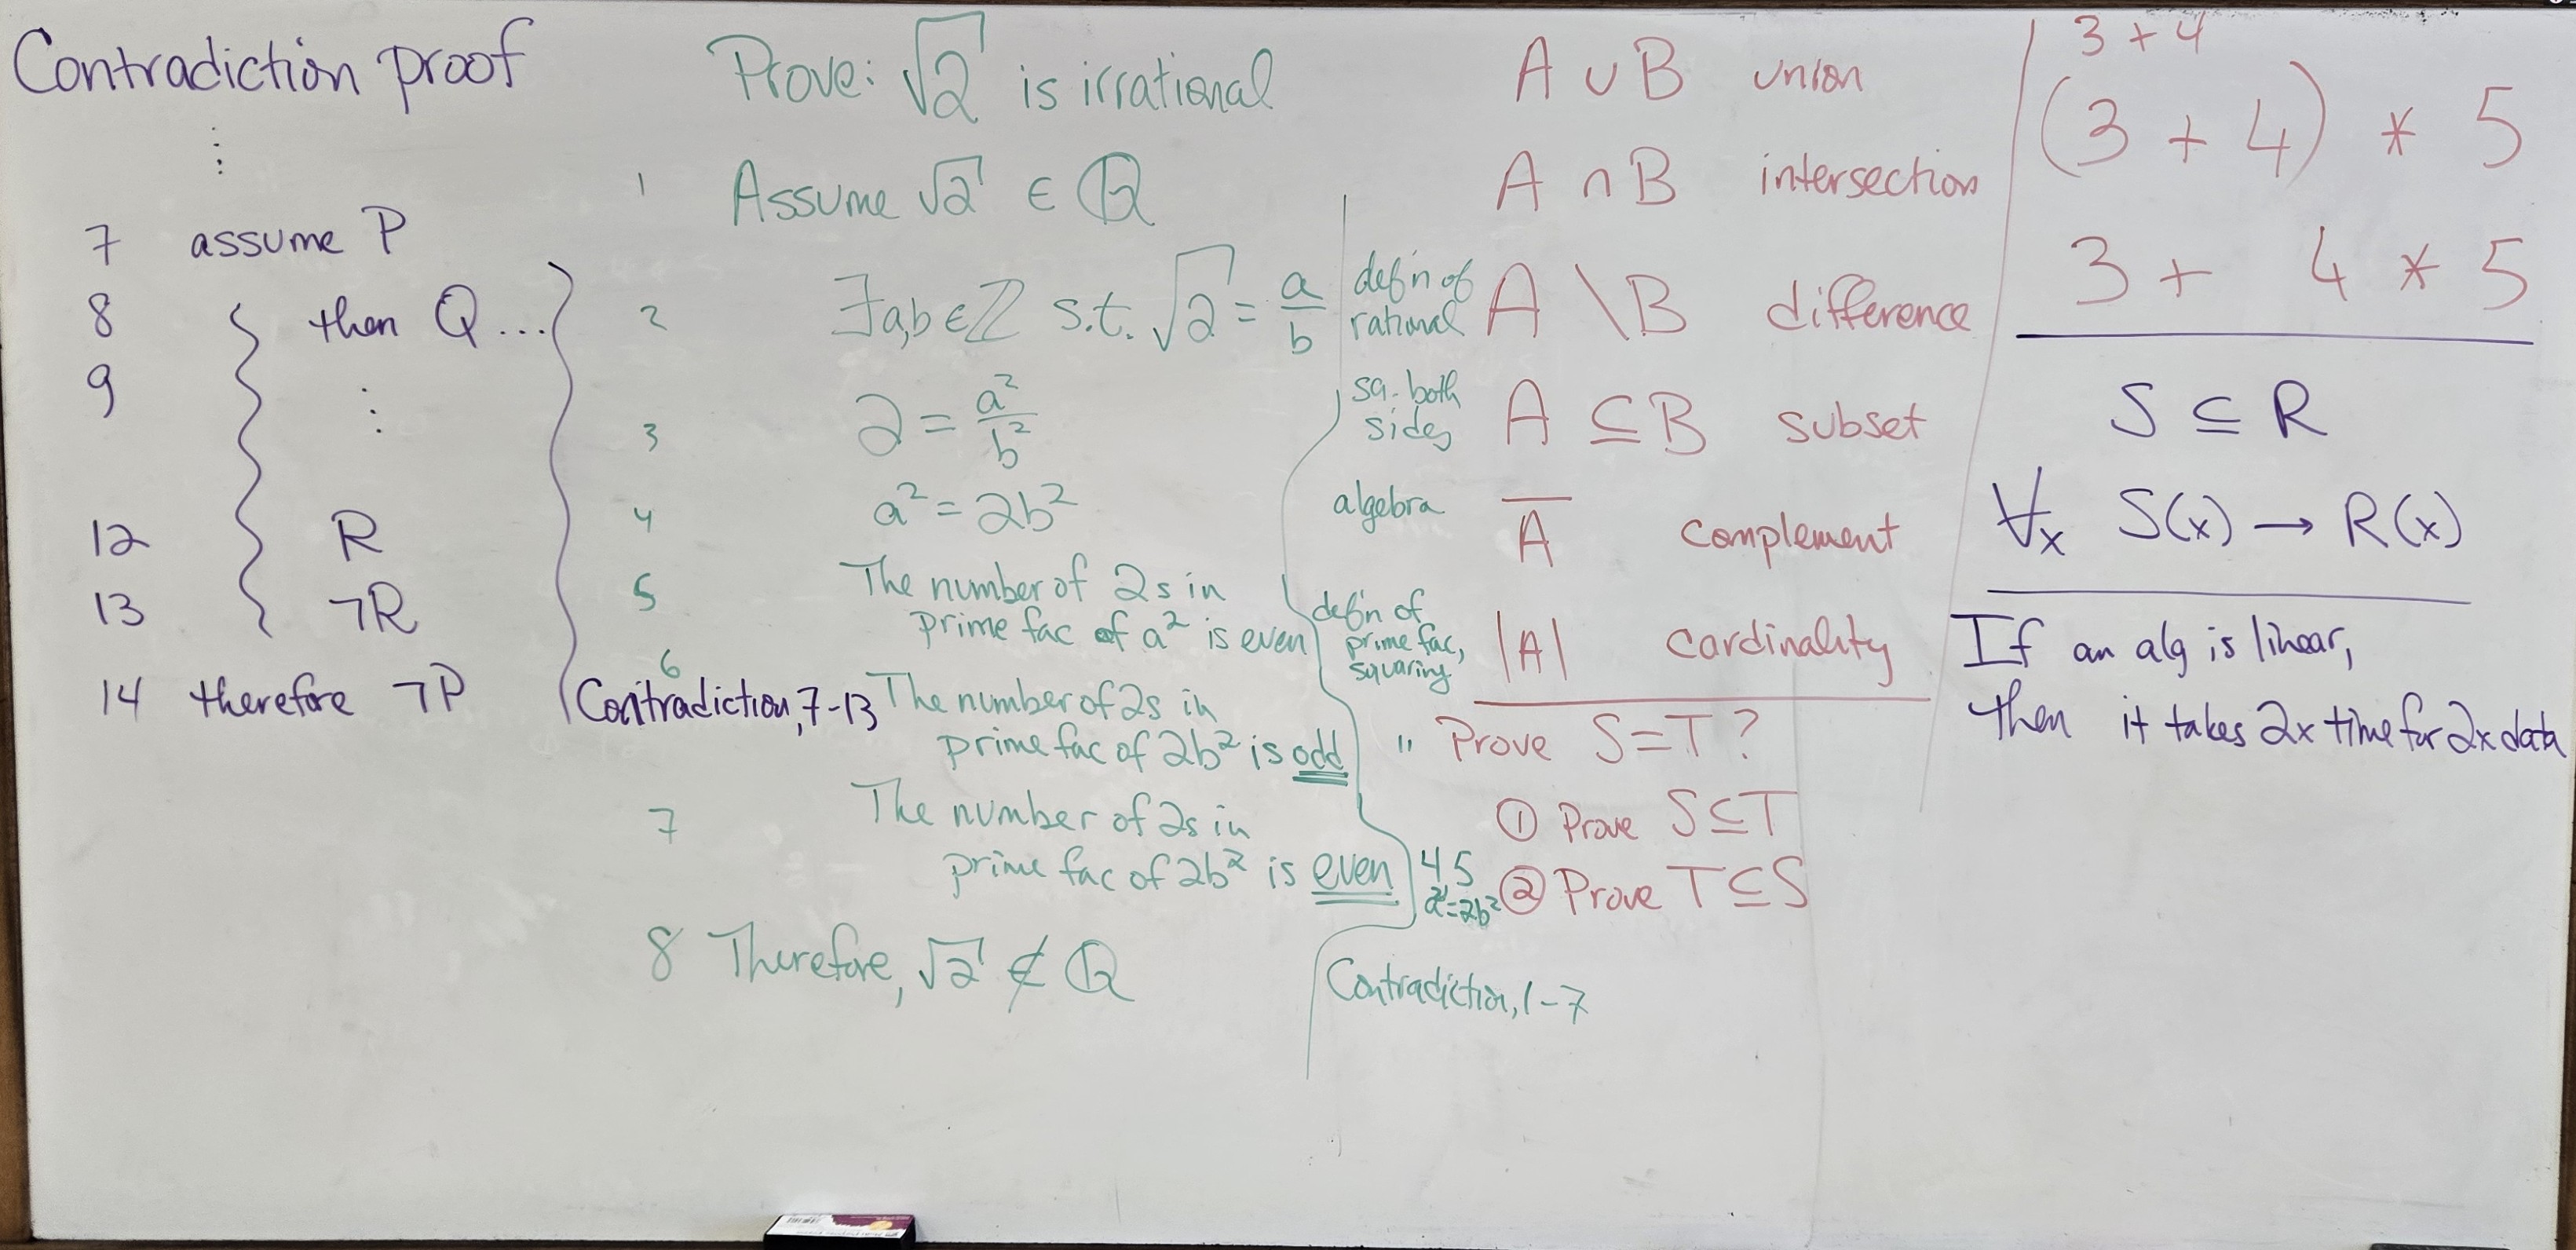 Contradiction proof
⋮
7 assume P
8 then Q ...
9 ⋮
12 R
13 ¬R
14 therefore ¬P Contradiction, 7-13
Prove: √2 is irrational
1 Assume √2 ∈ ℚ
2 ∃a,b ∈ ℤ s.t. √2 = a/b defn of
rational
3 2 = a²/b² sq. both
sides
4 a² = 2b² algebra
5 The number of 2s in
prime fac of a² is even defn of
prime fac,
squaring
6 The number of 2s in
prime fac of 2b² is odd "
7 The number of 2s in
prime fac of 2b² is even 4 5
a²=2b²
8 Therefore, √2 ∉ ℚ Contradiction, 1-7
A ∪ B union
A ∩ B intersection
A \ B difference
A ⊆ B subset
A̅ complement
|A| cardinality
Prove S=T?
① Prove S⊆T
② Prove T⊆S
3 + 4
(3 + 4) * 5
3 + 4 * 5
S ⊆ R
∀x S(x) → R(x)
If an alg is linear,
then it takes 2x time for 2x data